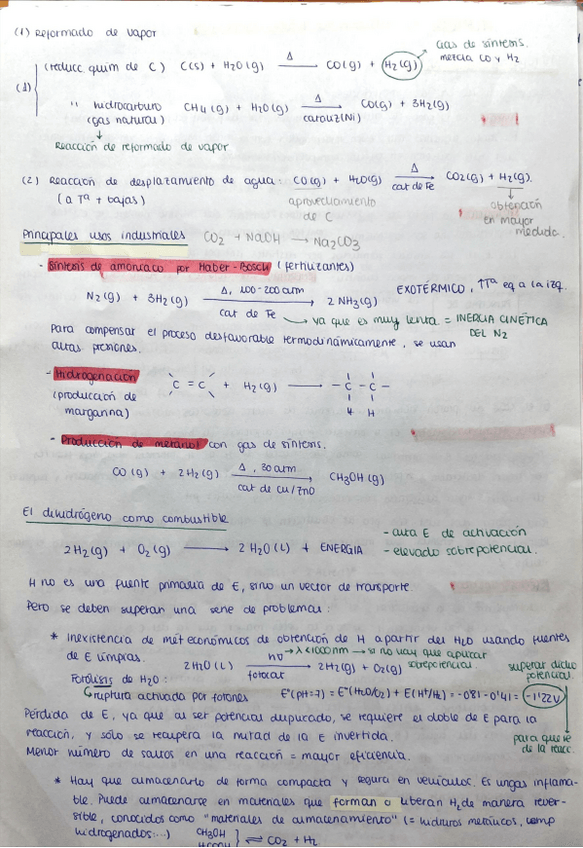 (1) Reformado de vapor
(1) (reducc quim de C) C(s) + H₂O(g) —Δ→ CO(g) + H₂(g) → Gas de síntesis.
mezcla CO y H₂
" hidrocarburo CH₄(g) + H₂O(g) —Δ→ CO(g) + 3H₂(g)
(gas natural) cataliz(Ni)
↓
Reacción de reformado de vapor
(2) Reacción de desplazamiento de agua: CO(g) + H₂O(g) —Δ→ CO₂(g) + H₂(g).
(a Tª + bajas) cat de Fe
aprovechamiento de C
obtención en mayor medida.
Principales usos industriales CO₂ + NaOH → Na₂CO₃
- Síntesis de amoníaco por Haber-Bosch (fertilizantes)
N₂(g) + 3H₂(g) —Δ, 100-200 atm→ 2 NH₃(g) EXOTÉRMICO, ↑Tª eq a la izq.
cat de Fe → ya que es muy lenta = INERCIA CINÉTICA
DEL N₂
Para compensar el proceso desfavorable termodinámicamente, se usan
altas presiones.
- Hidrogenación C = C + H₂(g) → - C - C -
(producción de H H
margarina)
- Producción de metanol con gas de síntesis.
CO(g) + 2H₂(g) —Δ, 30 atm→ CH₃OH(g)
cat de Cu/ZnO
El dihidrógeno como combustible
2H₂(g) + O₂(g) → 2 H₂O(l) + ENERGIA
- alta E de activación
- elevado sobrepotencial.
H no es una fuente primaria de E, sino un vector de transporte.
Pero se deben superan una serie de problemas:
* Inexistencia de mét económicos de obtención de H a partir del H₂O usando fuentes
de E limpias. hν → λ<1000nm → si no hay que aplicar
2H₂O(l) → 2H₂(g) + O₂(g) sobrepotencial. superar dicho
Fotólisis de H₂O: fotocat potencial.
↳ ruptura activada por fotones E°(pH=7) = E°(H₂O/O₂) + E(H⁺/H₂) = -0'81 - 0'41 = -1'22V
para que se
de la reacc.
Pérdida de E, ya que al ser potencial duplicado, se requiere el doble de E para la
reacción, y sólo se recupera la mitad de la E invertida.
Menor número de saltos en una reacción = mayor eficiencia.
* Hay que almacenarlo de forma compacta y segura en vehículos. Es un gas inflama-
ble. Puede almacenarse en materiales que forman o liberan H₂ de manera rever-
sible, conocidos como "materiales de almacenamiento" (= hidruros metálicos, comp
hidrogenados:...) CH₃OH
HCOOH } ⇌ CO₂ + H₂